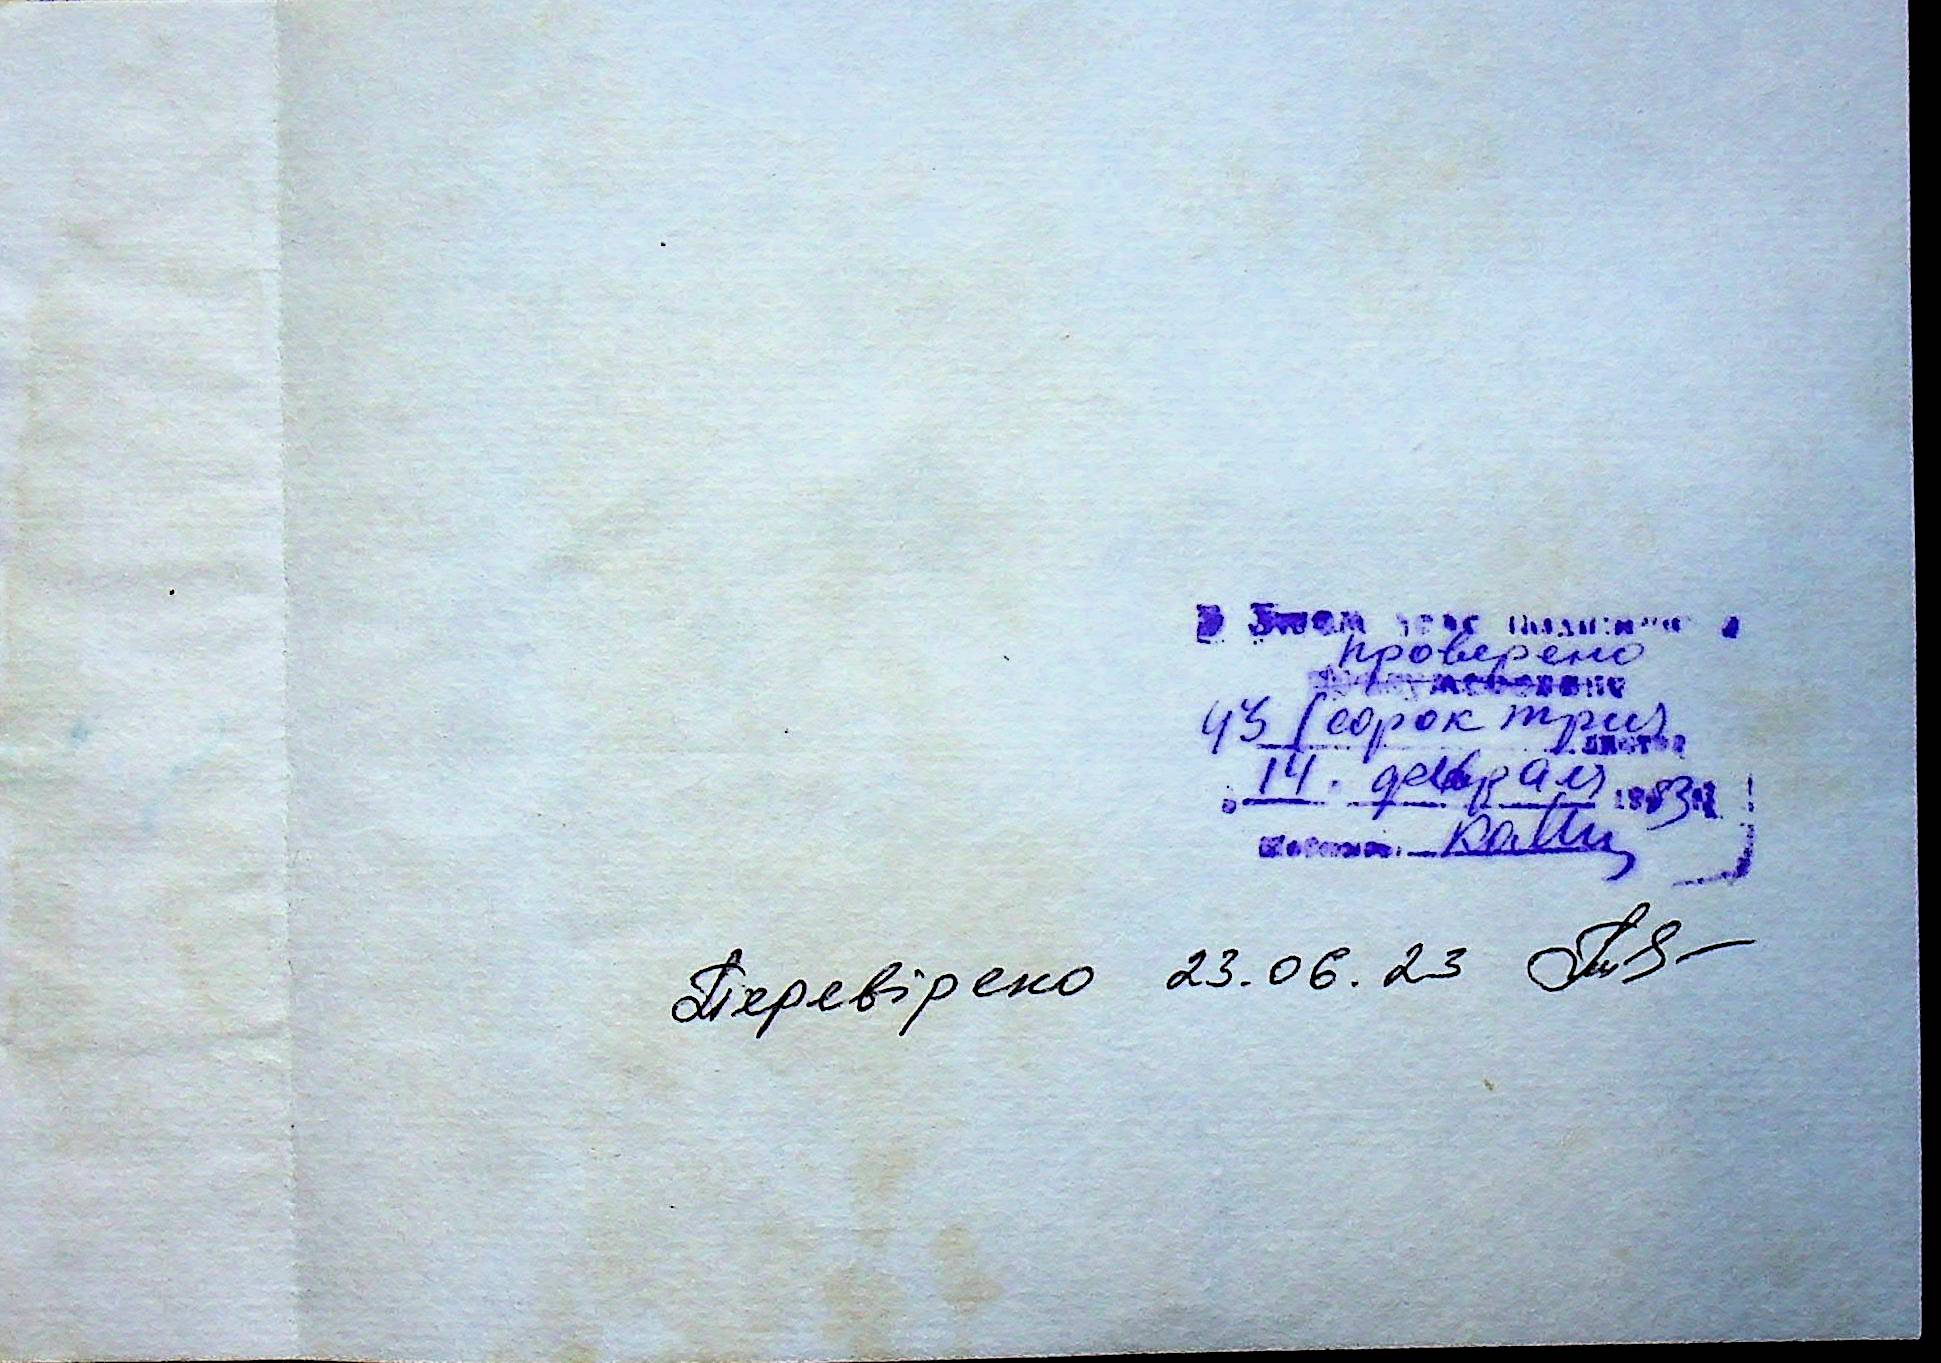 В этом
проверено
43 (сорок три)
листов
14. февраля 1983 г.
Перевірено 23.06.23